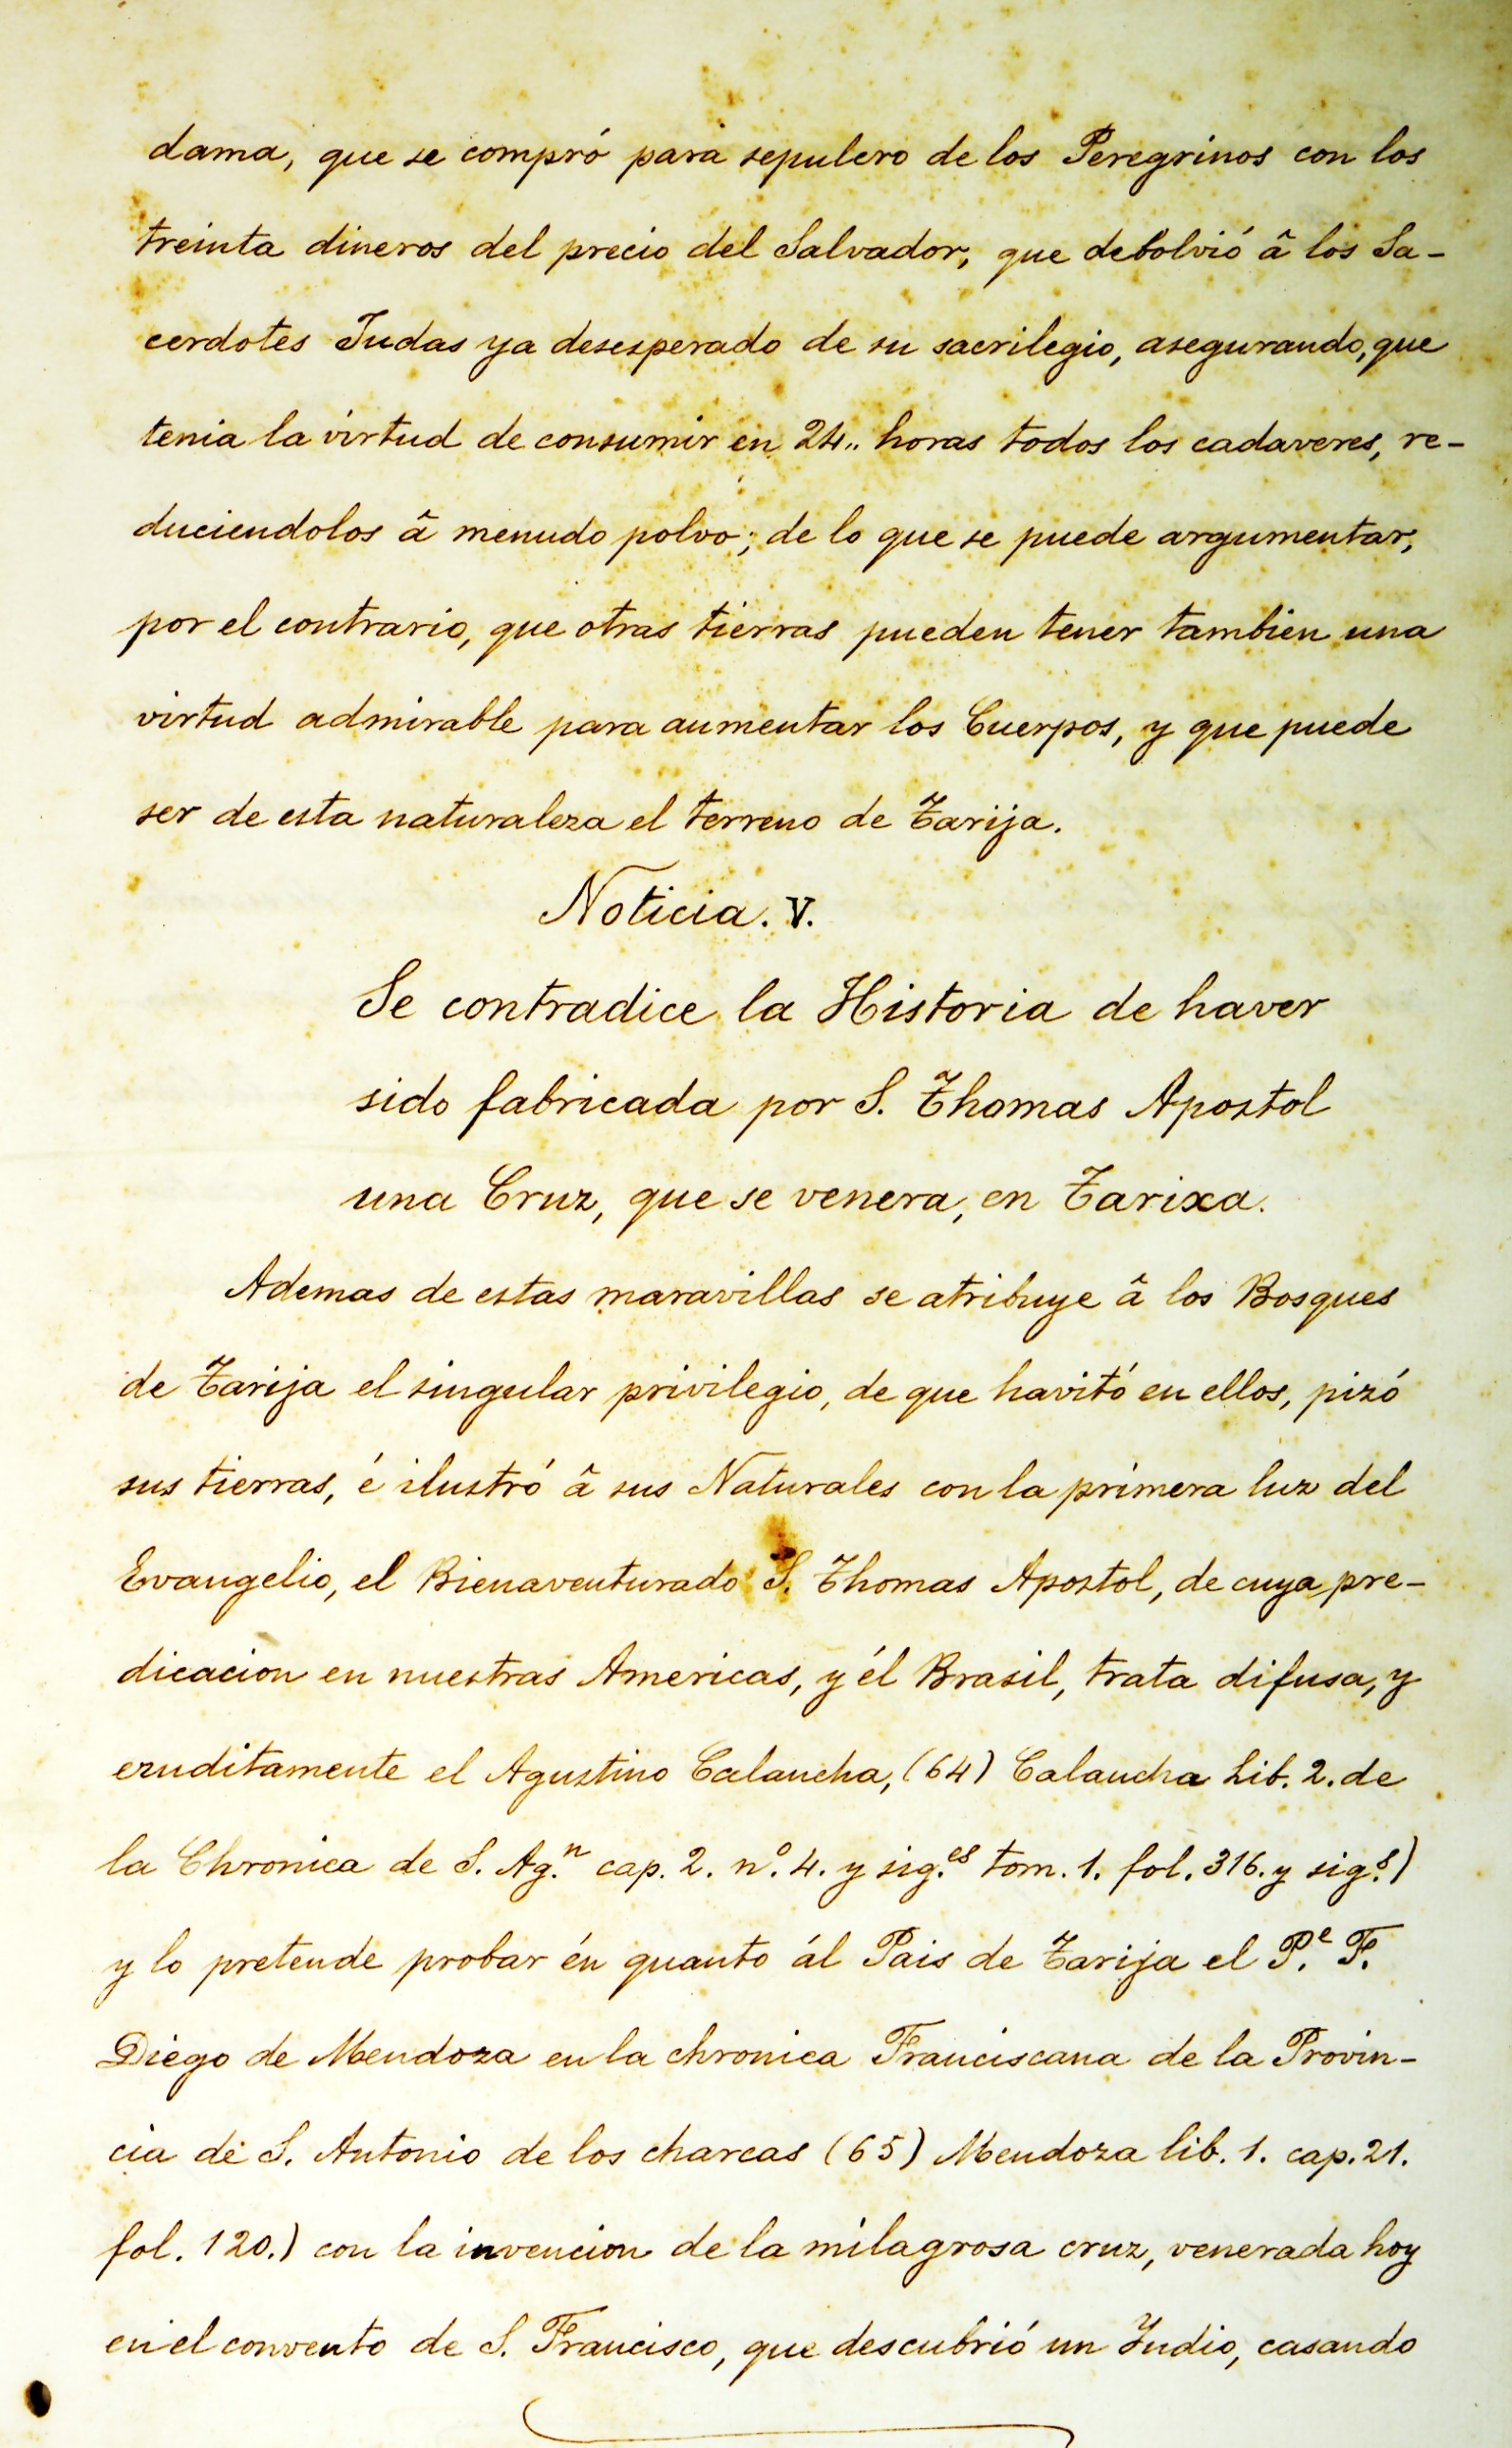 dama, que se compró para sepulcro de los Peregrinos con los
treinta dineros del precio del Salvador, que debolvió â los Sa-
cerdotes Judas ya desesperado de su sacrilegio, asegurando, que
tenia la virtud de consumir en 24.. horas todos los cadaveres, re-
duciendolos â menudo polvo; de lo que se puede argumentar,
por el contrario, que otras tierras pueden tener tambien una
virtud admirable para aumentar los Cuerpos, y que puede
ser de esta naturaleza el terreno de Tarija.
Noticia. V.
Se contradice la Historia de haver
sido fabricada por S. Thomas Apostol
una Cruz, que se venera, en Tarixa.
Ademas de estas maravillas se atribuye â los Bosques
de Tarija el singular privilegio, de que havitó en ellos, pizó
sus tierras, é ilustró â sus Naturales con la primera luz del
Evangelio, el Bienaventurado S. Thomas Apostol, de cuya pre-
dicacion en nuestras Americas, y él Brasil, trata difusa, y
eruditamente el Agustino Calancha, (64) Calancha Lib. 2. de
la Chronica de S. Ag.ⁿ cap. 2. nº. 4. y sig.es tom. 1. fol. 316. y sig.s)
y lo pretende probar én quanto ál Pais de Tarija el P.e F.
Diego de Mendoza en la chronica Franciscana de la Provin-
cia de S. Antonio de los charcas (65) Mendoza lib. 1. cap. 21.
fol. 120.) con la invencion de la milagrosa cruz, venerada hoy
en el convento de S. Francisco, que descubrió un Yndio, casando